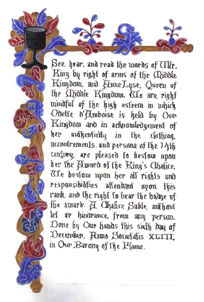 See, hear, and read the words of Ullr,
King by right of arms of the Middle
Kingdom, and AnneLyse, Queen of
the Middle Kingdom. We are right
mindful of the high esteem in which
Odette d'Amboise is held by Our
Kingdom and in acknowledgement of
her authenticity in the clothing,
accoutrements, and persona of the 14th
century, are pleased to bestow upon
her the Award of the King's Chalice.
We bestow upon her all rights and
responsibilities attendant upon this
rank, and the right to bear the badge of
the award: A Chalice Sable, without
let or hinderance, from any person.
Done by Our hands this sixth day of
December, Anno Societatis XLIII,
in Our Barony of the Flame.